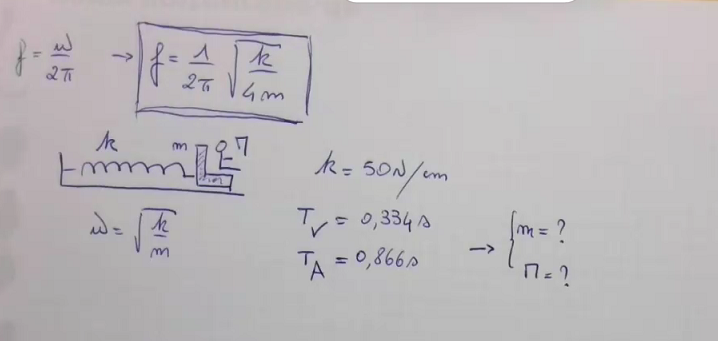 f = ω/2π → f = 1/2π √k/4m
k m Π
m
ω = √k/m
k = 50N/cm
T_V = 0,334s
T_A = 0,866s
→ { m = ?
Π = ?